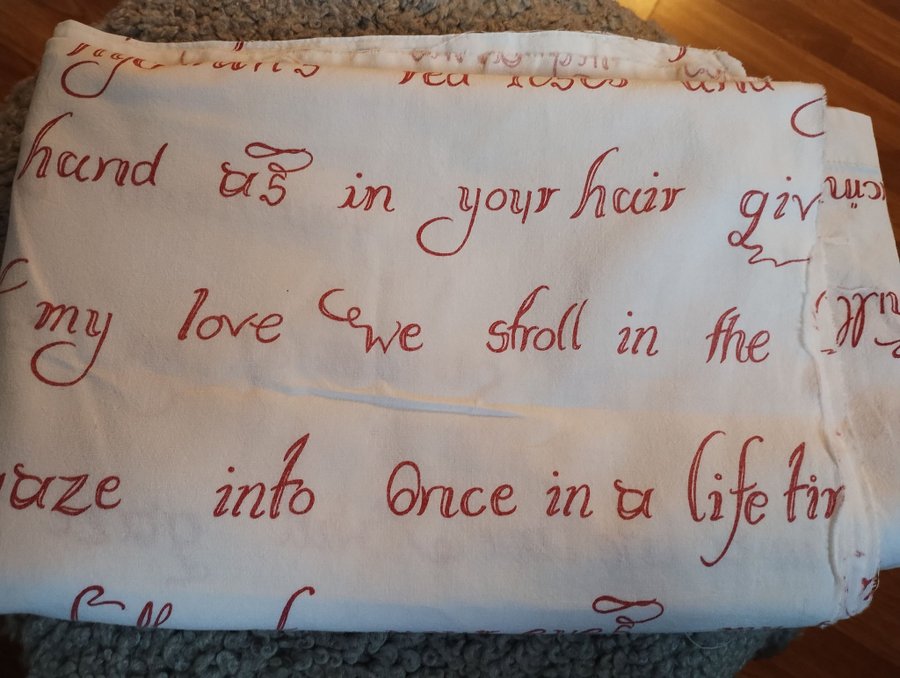 red roses and
hand as in your hair giv
my love we stroll in the
aze into Once in a life tim